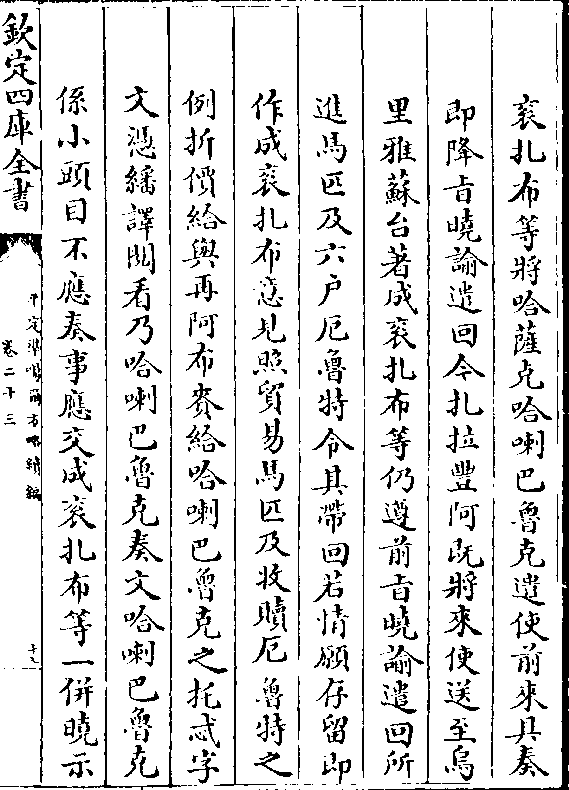 袞扎布等將哈薩克哈喇巴魯克遣使前來具奏
即降㫖曉諭遣回今扎拉豐阿既將來使送至烏
里雅蘇台著成袞扎布等仍遵前㫖曉諭遣回所
進馬匹及六户厄魯特令其帶回若情願存留即
作成袞扎布意見照貿易馬匹及收贖厄魯特之
例折價給與再阿布賚給哈喇巴魯克之托忒字
文憑繙譯閲看乃哈喇巴魯克奏文哈喇巴魯克
係小頭目不應奏事應交成袞扎布等一併曉示
欽定四庫全書
平定準噶爾方略續編
卷二十三
十九